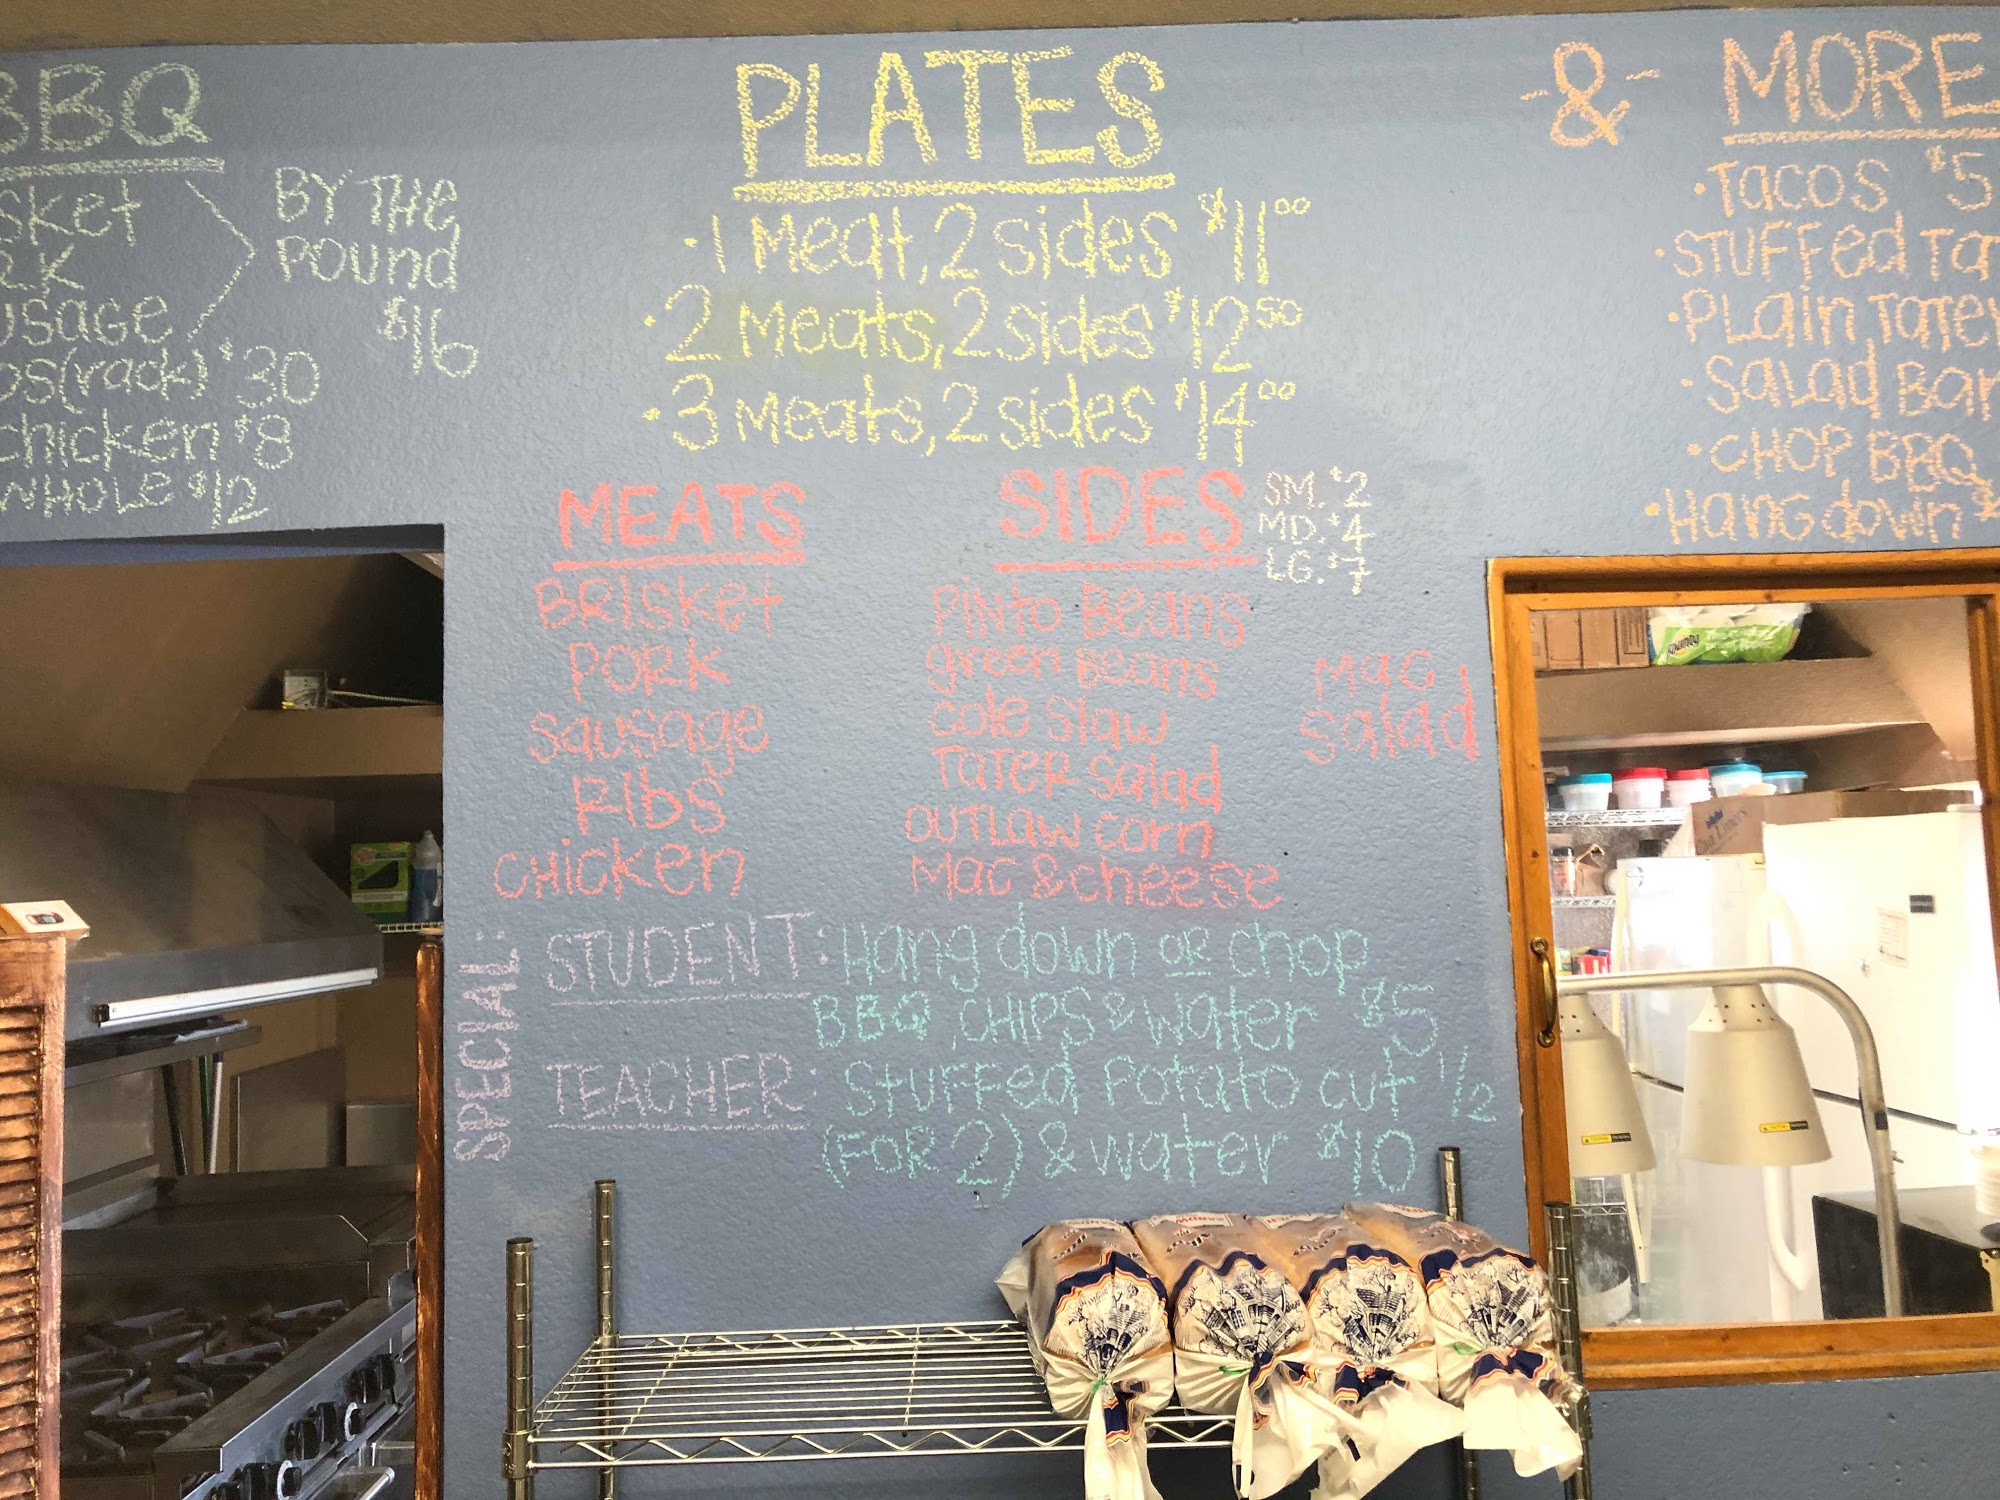 BBQ
BY THE
POUND
$16
(rack) $30
chicken $8
WHOLE $12
PLATES
·1 Meat, 2 sides $11.00
·2 Meats, 2 sides $12.50
·3 Meats, 2 sides $14.00
MEATS
BRISKET
PORK
sausage
RIBS
CHICKEN
SIDES
SM. $2
MD. $4
LG. $7
PINTO BEANS
green BEANS
cole slaw
TATER salad
OUTLAW CORN
Mac & cheese
Mac
salad
SPECIAL:
STUDENT: Hang down OR chop
BBQ, CHIPS & water $5
TEACHER: STUFFED Potato cut 1/2
(FOR 2) & water $10
-&- MORE
·TACOS $5
·STUFFED
·PLain TATER
·SALAD BAR
·CHOP BBQ
·Hang down $
Bounty